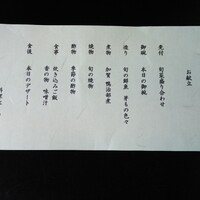 お献立
先付　旬菜盛り合わせ
御椀　本日の御椀
造り　旬の鮮魚　芽もの色々
煮物　加賀　鴨治部煮
焼物　旬の焼物
酢物　季節の酢物
食事　炊き込みご飯
香の物　味噌汁
食後　本日のデザート
料理長